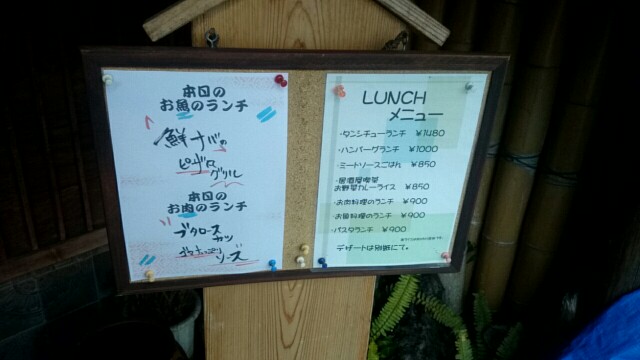 本日の
お魚のランチ
鮮ナバの
ピザロ
グリル
本日の
お肉のランチ
ブタロース
カツ
ソース
LUNCH
メニュー
・タンシチューランチ ￥1480
・ハンバーグランチ ￥1000
・ミートソースごはん ￥850
・居酒屋喫茶
お野菜カレーライス ￥850
・お肉料理のランチ ￥900
・お魚料理のランチ ￥900
・パスタランチ ￥900
デザートは別紙にて。